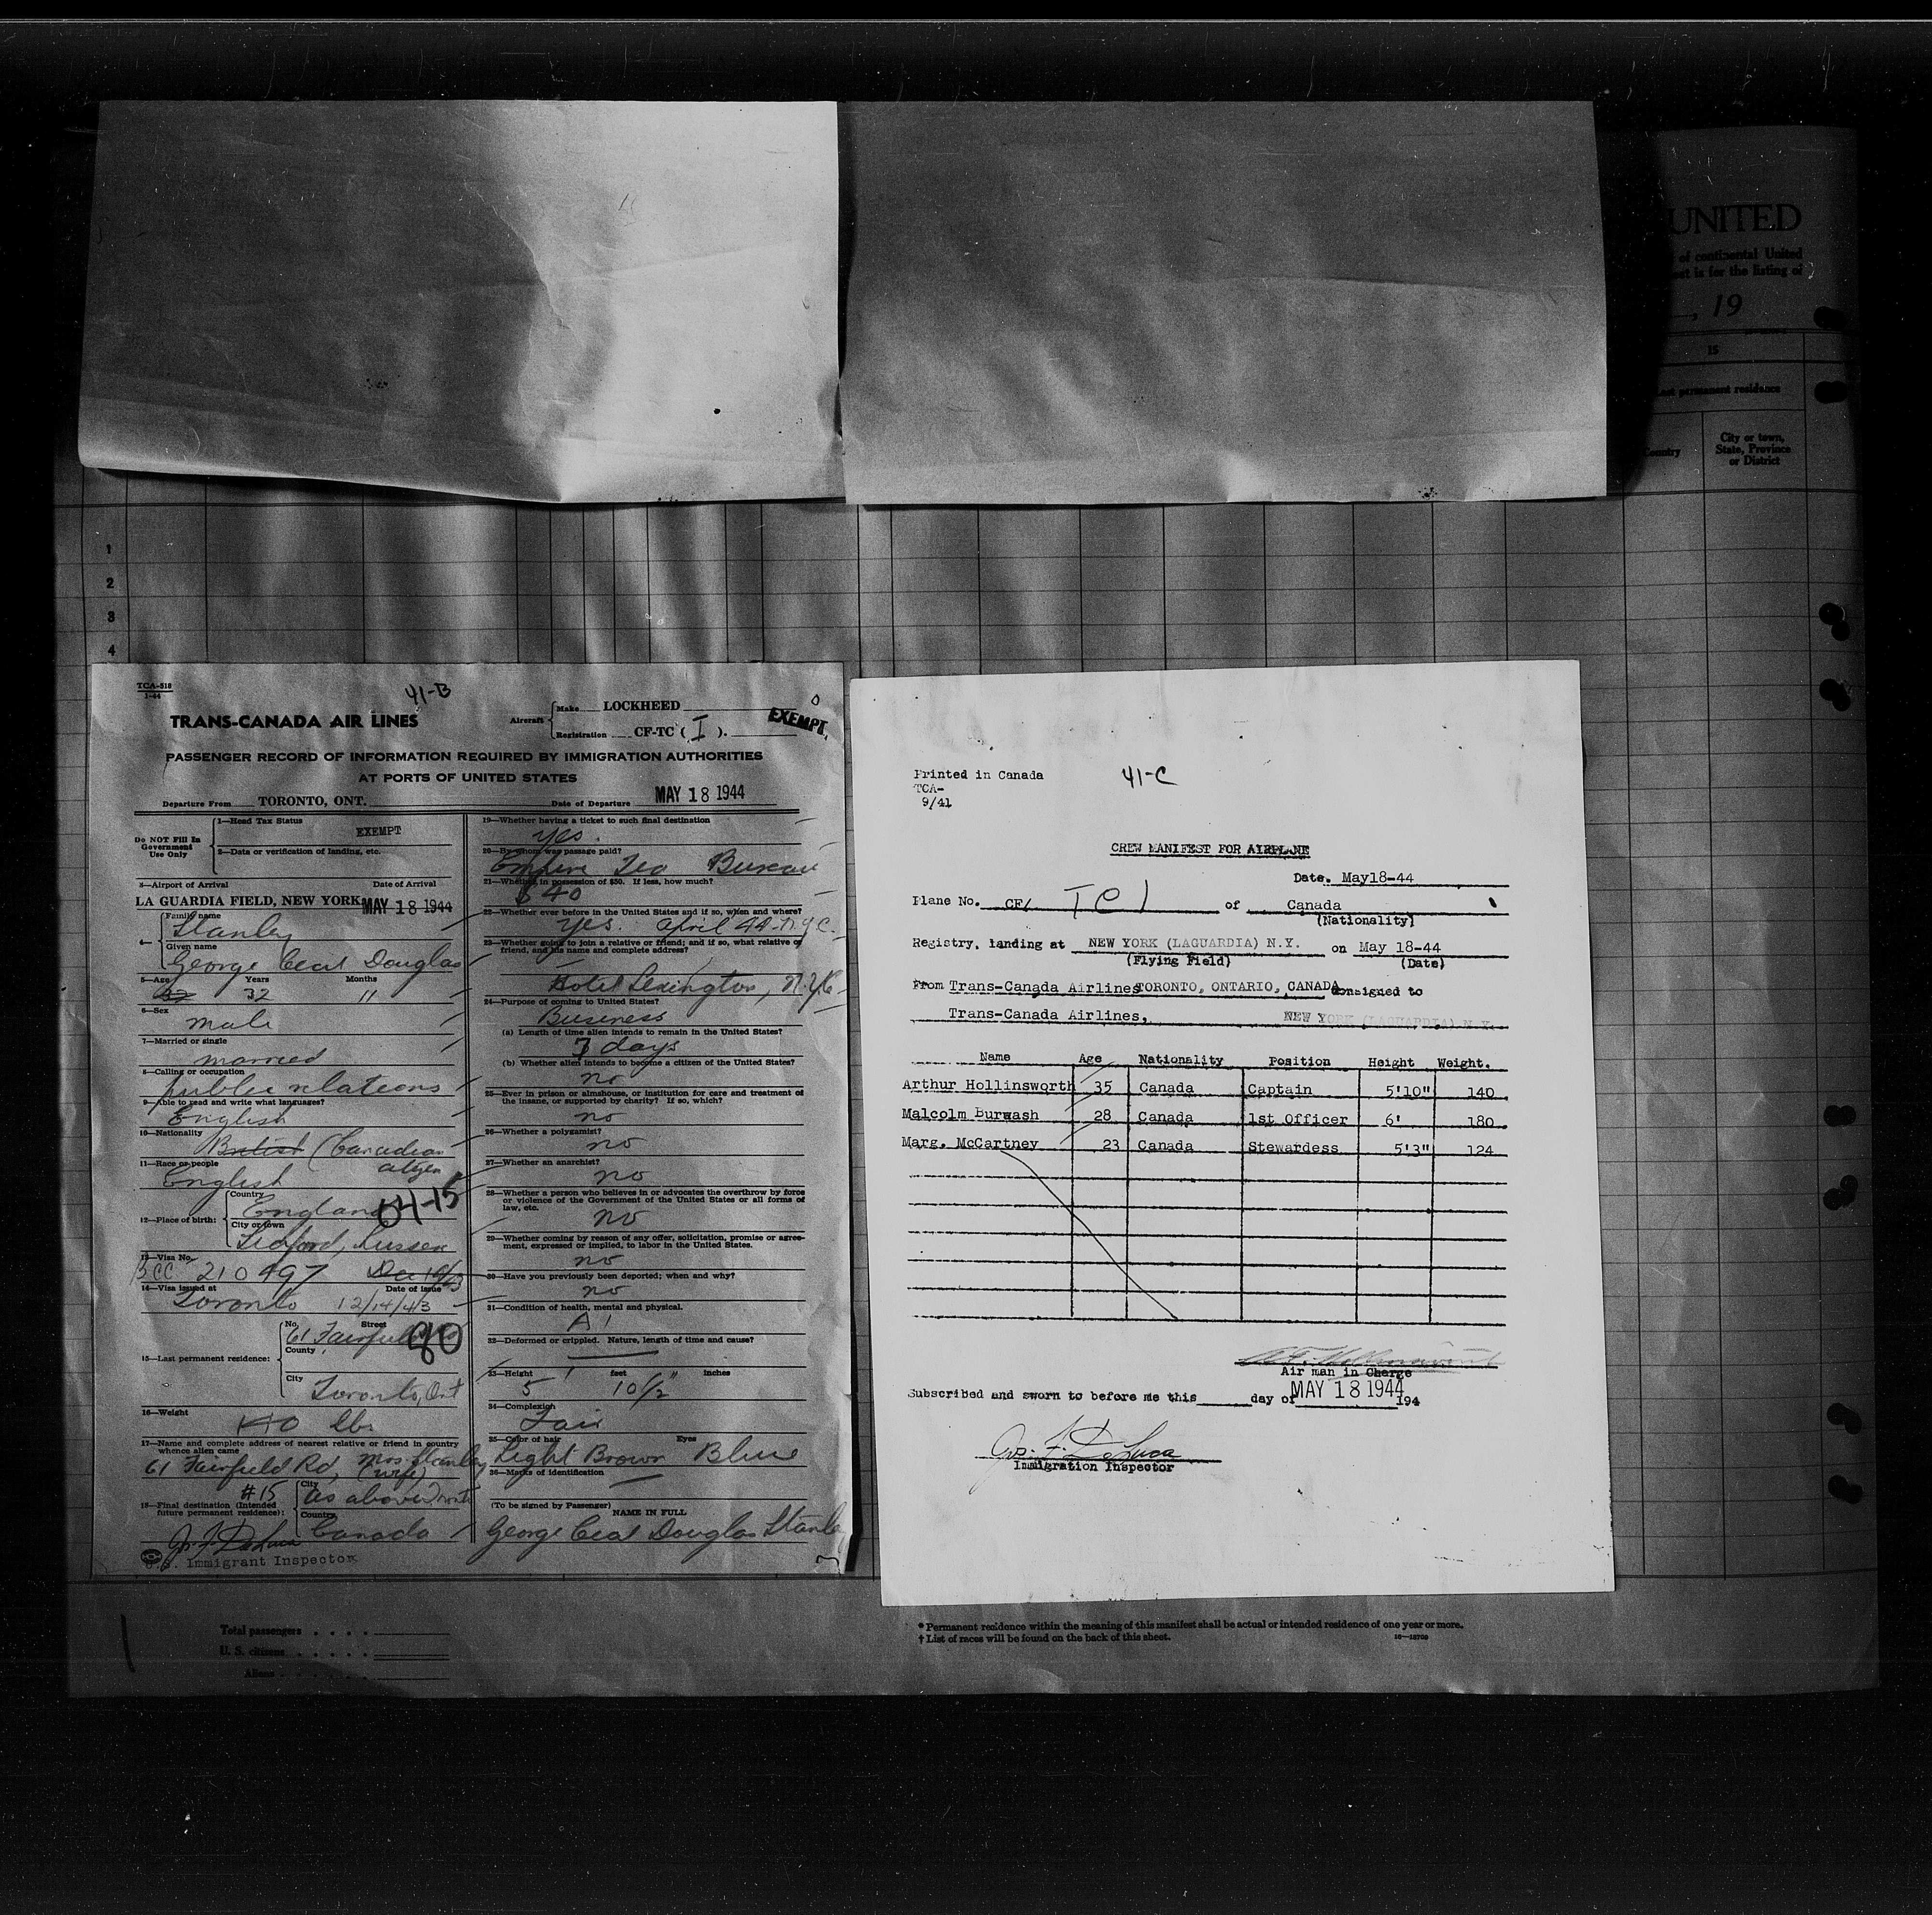 UNITED
of continental United
eet is for the listing of
, 19
15
permanent residence
Country
City or town,
State, Province
or District
1
2
3
4
TCA-518
1-44
41-B
TRANS-CANADA AIR LINES
Aircraft
Make LOCKHEED
Registration CF-TC ( I ).
EXEMPT.
PASSENGER RECORD OF INFORMATION REQUIRED BY IMMIGRATION AUTHORITIES
AT PORTS OF UNITED STATES
Departure From TORONTO, ONT. Date of Departure MAY 18 1944
Do NOT Fill In
Government
Use Only
1—Head Tax Status
EXEMPT
2—Data or verification of landing, etc.
3—Airport of Arrival Date of Arrival
LA GUARDIA FIELD, NEW YORK MAY 18 1944
4—
Family name
Stanley
Given name
George Cecil Douglas
5—Age Years Months
32 11
6—Sex
male
7—Married or single
married
8—Calling or occupation
public relations
9—Able to read and write what languages?
English
10—Nationality
British (Canadian
citizen
11—Race or people
English
12—Place of birth:
Country
England
04-15
City or town
Sussex
13—Visa No.
BCC 210497
14—Visa issued at Date of issue
Toronto 12/14/43
15—Last permanent residence:
No. Street
61 Fairfield
80
County
City
Toronto, Ont
16—Weight
140 lbs
17—Name and complete address of nearest relative or friend in country
whence alien came
Mrs. Stanley
61 Fairfield Rd, (wife)
#15
18—Final destination (Intended
future permanent residence):
City
as above
Country
Canada
U.S. Immigrant Inspector
19—Whether having a ticket to such final destination
yes.
20—By whom was passage paid?
Empire Tea Bureau
21—Whether in possession of $50. If less, how much?
$40
22—Whether ever before in the United States and if so, when and where?
Yes. April 44-N.Y.C.
23—Whether going to join a relative or friend; and if so, what relative or
friend, and his name and complete address?
Hotel Lexington, N.Y.C.
24—Purpose of coming to United States?
Business
(a) Length of time alien intends to remain in the United States?
7 days
(b) Whether alien intends to become a citizen of the United States?
no
25—Ever in prison or almshouse, or institution for care and treatment of
the insane, or supported by charity? If so, which?
no
26—Whether a polygamist?
no
27—Whether an anarchist?
no
28—Whether a person who believes in or advocates the overthrow by force
or violence of the Government of the United States or all forms of
law, etc.
no
29—Whether coming by reason of any offer, solicitation, promise or agree-
ment, expressed or implied, to labor in the United States.
no
30—Have you previously been deported; when and why?
no
31—Condition of health, mental and physical.
A1
32—Deformed or crippled. Nature, length of time and cause?
33—Height feet inches
5' 10 1/2"
34—Complexion
Fair
35—Color of hair Eyes
Light Brown Blue
36—Marks of identification
(To be signed by Passenger)
NAME IN FULL
George Cecil Douglas Stanley
Printed in Canada
TCA-
9/41
41-C
CREW MANIFEST FOR AIRPLANE
Date. May18-44
Plane No. CF/ TCI of Canada
(Nationality)
Registry, landing at NEW YORK (LAGUARDIA) N.Y. on May 18-44
(Flying Field) (Date)
From Trans-Canada Airlines TORONTO, ONTARIO, CANADA consigned to
Trans-Canada Airlines, NEW YORK (LAGUARDIA) N.Y.
Name Age Nationality Position Height Weight.
Arthur Hollinsworth 35 Canada Captain 5'10" 140
Malcolm Burwash 28 Canada 1st Officer 6' 180
Marg. McCartney 23 Canada Stewardess 5'3" 124
Air man in Charge
Subscribed and sworn to before me this day of MAY 18 1944 194
Jos. F. DeLuca
Immigration Inspector
Total passengers . . . .
U. S. citizens . . . . .
Aliens . . . . . .
* Permanent residence within the meaning of this manifest shall be actual or intended residence of one year or more.
† List of races will be found on the back of this sheet. 16—18700